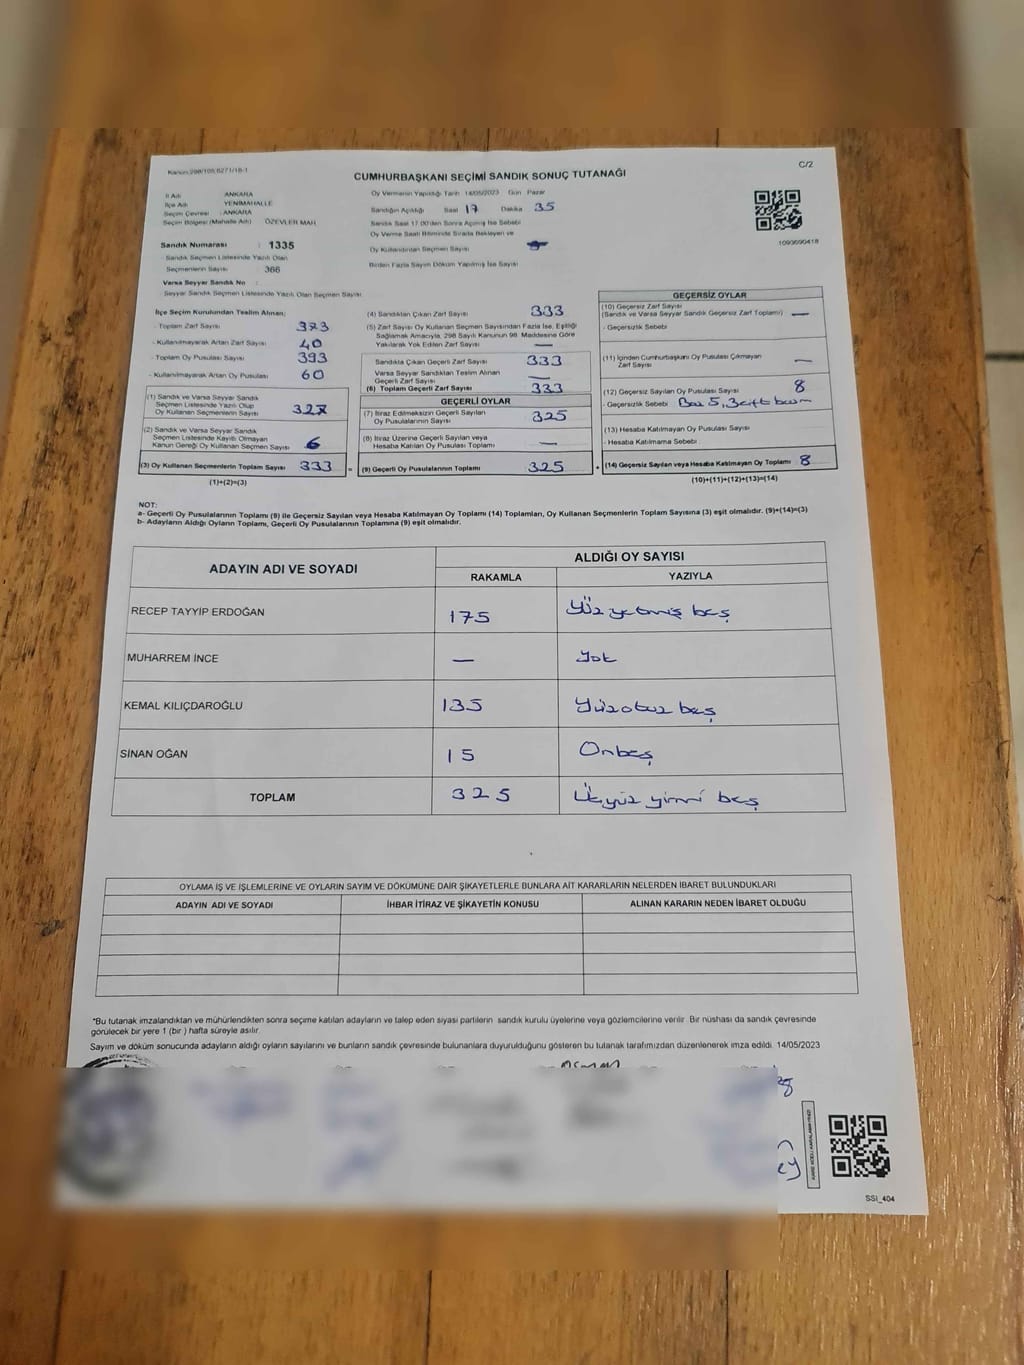 Kanun:298/105,6271/18-1
C/2
CUMHURBAŞKANI SEÇİMİ SANDIK SONUÇ TUTANAĞI
İl Adı ANKARA
İlçe Adı YENİMAHALLE
Seçim Çevresi : ANKARA
Seçim Bölgesi (Mahalle Adı) ÖZEVLER MAH.
Sandık Numarası : 1335
Sandık Seçmen Listesinde Yazılı Olan
Seçmenlerin Sayısı 366
Varsa Seyyar Sandık No :
Seyyar Sandık Seçmen Listesinde Yazılı Olan Seçmen Sayısı
Oy Vermenin Yapıldığı Tarih 14/05/2023 Gün Pazar
Sandığın Açıldığı Saat 17 Dakika 35
Sandık Saat 17.00'den Sonra Açılmış İse Sebebi
Oy Verme Saati Bitiminde Sırada Bekleyen ve
Oy Kullandırılan Seçmen Sayısı
Birden Fazla Sayım Döküm Yapılmış İse Sayısı
1093090418
İlçe Seçim Kurulundan Teslim Alınan;
- Toplam Zarf Sayısı 373
- Kullanılmayarak Artan Zarf Sayısı 40
- Toplam Oy Pusulası Sayısı 393
- Kullanılmayarak Artan Oy Pusulası 60
(1) Sandık ve Varsa Seyyar Sandık
Seçmen Listesinde Yazılı Olup
Oy Kullanan Seçmenlerin Sayısı 327
(2) Sandık ve Varsa Seyyar Sandık
Seçmen Listesinde Kayıtlı Olmayan
Kanun Gereği Oy Kullanan Seçmen Sayısı 6
(3) Oy Kullanan Seçmenlerin Toplam Sayısı 333 =
(1)+(2)=(3)
(4) Sandıktan Çıkan Zarf Sayısı 333
(5) Zarf Sayısı Oy Kullanan Seçmen Sayısından Fazla İse, Eşitliği
Sağlamak Amacıyla, 298 Sayılı Kanunun 98. Maddesine Göre
Yakılarak Yok Edilen Zarf Sayısı —
Sandıkta Çıkan Geçerli Zarf Sayısı 333
Varsa Seyyar Sandıktan Teslim Alınan
Geçerli Zarf Sayısı —
(6) Toplam Geçerli Zarf Sayısı 333
GEÇERLİ OYLAR
(7) İtiraz Edilmeksizin Geçerli Sayılan
Oy Pusulalarının Sayısı 325
(8) İtiraz Üzerine Geçerli Sayılan veya
Hesaba Katılan Oy Pusulası Toplamı —
(9) Geçerli Oy Pusulalarının Toplamı 325 +
GEÇERSİZ OYLAR
(10) Geçersiz Zarf Sayısı
(Sandık ve Varsa Seyyar Sandık Geçersiz Zarf Toplamı) —
- Geçersizlik Sebebi
(11) İçinden Cumhurbaşkanı Oy Pusulası Çıkmayan
Zarf Sayısı —
(12) Geçersiz Sayılan Oy Pusulası Sayısı 8
- Geçersizlik Sebebi Boş 5, 3 çift basım
(13) Hesaba Katılmayan Oy Pusulası Sayısı
- Hesaba Katılmama Sebebi
(14) Geçersiz Sayılan veya Hesaba Katılmayan Oy Toplamı 8
(10)+(11)+(12)+(13)=(14)
NOT:
a- Geçerli Oy Pusulalarının Toplamı (9) ile Geçersiz Sayılan veya Hesaba Katılmayan Oy Toplamı (14) Toplamları, Oy Kullanan Seçmenlerin Toplam Sayısına (3) eşit olmalıdır. (9)+(14)=(3)
b- Adayların Aldığı Oyların Toplamı, Geçerli Oy Pusulalarının Toplamına (9) eşit olmalıdır.
ADAYIN ADI VE SOYADI ALDIĞI OY SAYISI
RAKAMLA YAZIYLA
RECEP TAYYİP ERDOĞAN 175 Yüz yetmiş beş
MUHARREM İNCE — Yok
KEMAL KILIÇDAROĞLU 135 Yüzotuz beş
SİNAN OĞAN 15 Onbeş
TOPLAM 325 Üçyüz yirmi beş
OYLAMA İŞ VE İŞLEMLERİNE VE OYLARIN SAYIM VE DÖKÜMÜNE DAİR ŞİKAYETLERLE BUNLARA AİT KARARLARIN NELERDEN İBARET BULUNDUKLARI
ADAYIN ADI VE SOYADI İHBAR İTİRAZ VE ŞİKAYETİN KONUSU ALINAN KARARIN NEDEN İBARET OLDUĞU
*Bu tutanak imzalandıktan ve mühürlendikten sonra seçime katılan adayların ve talep eden siyasi partilerin sandık kurulu üyelerine veya gözlemcilerine verilir. Bir nüshası da sandık çevresinde
görülecek bir yere 1 (bir) hafta süreyle asılır.
Sayım ve döküm sonucunda adayların aldığı oyların sayılarını ve bunların sandık çevresinde bulunanlara duyurulduğunu gösteren bu tutanak tarafımızdan düzenlenerek imza edildi. 14/05/2023
SSI_404